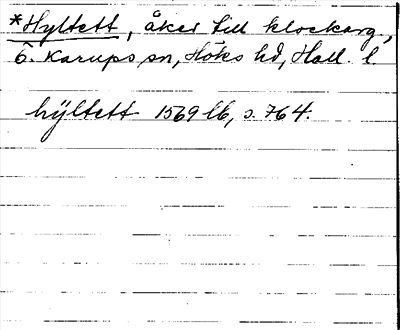 *Hyltett, åker till klockarg,
Ö. Karups sn, Höks hd, Hall. l
hÿltett 1569 lb, s. 764.